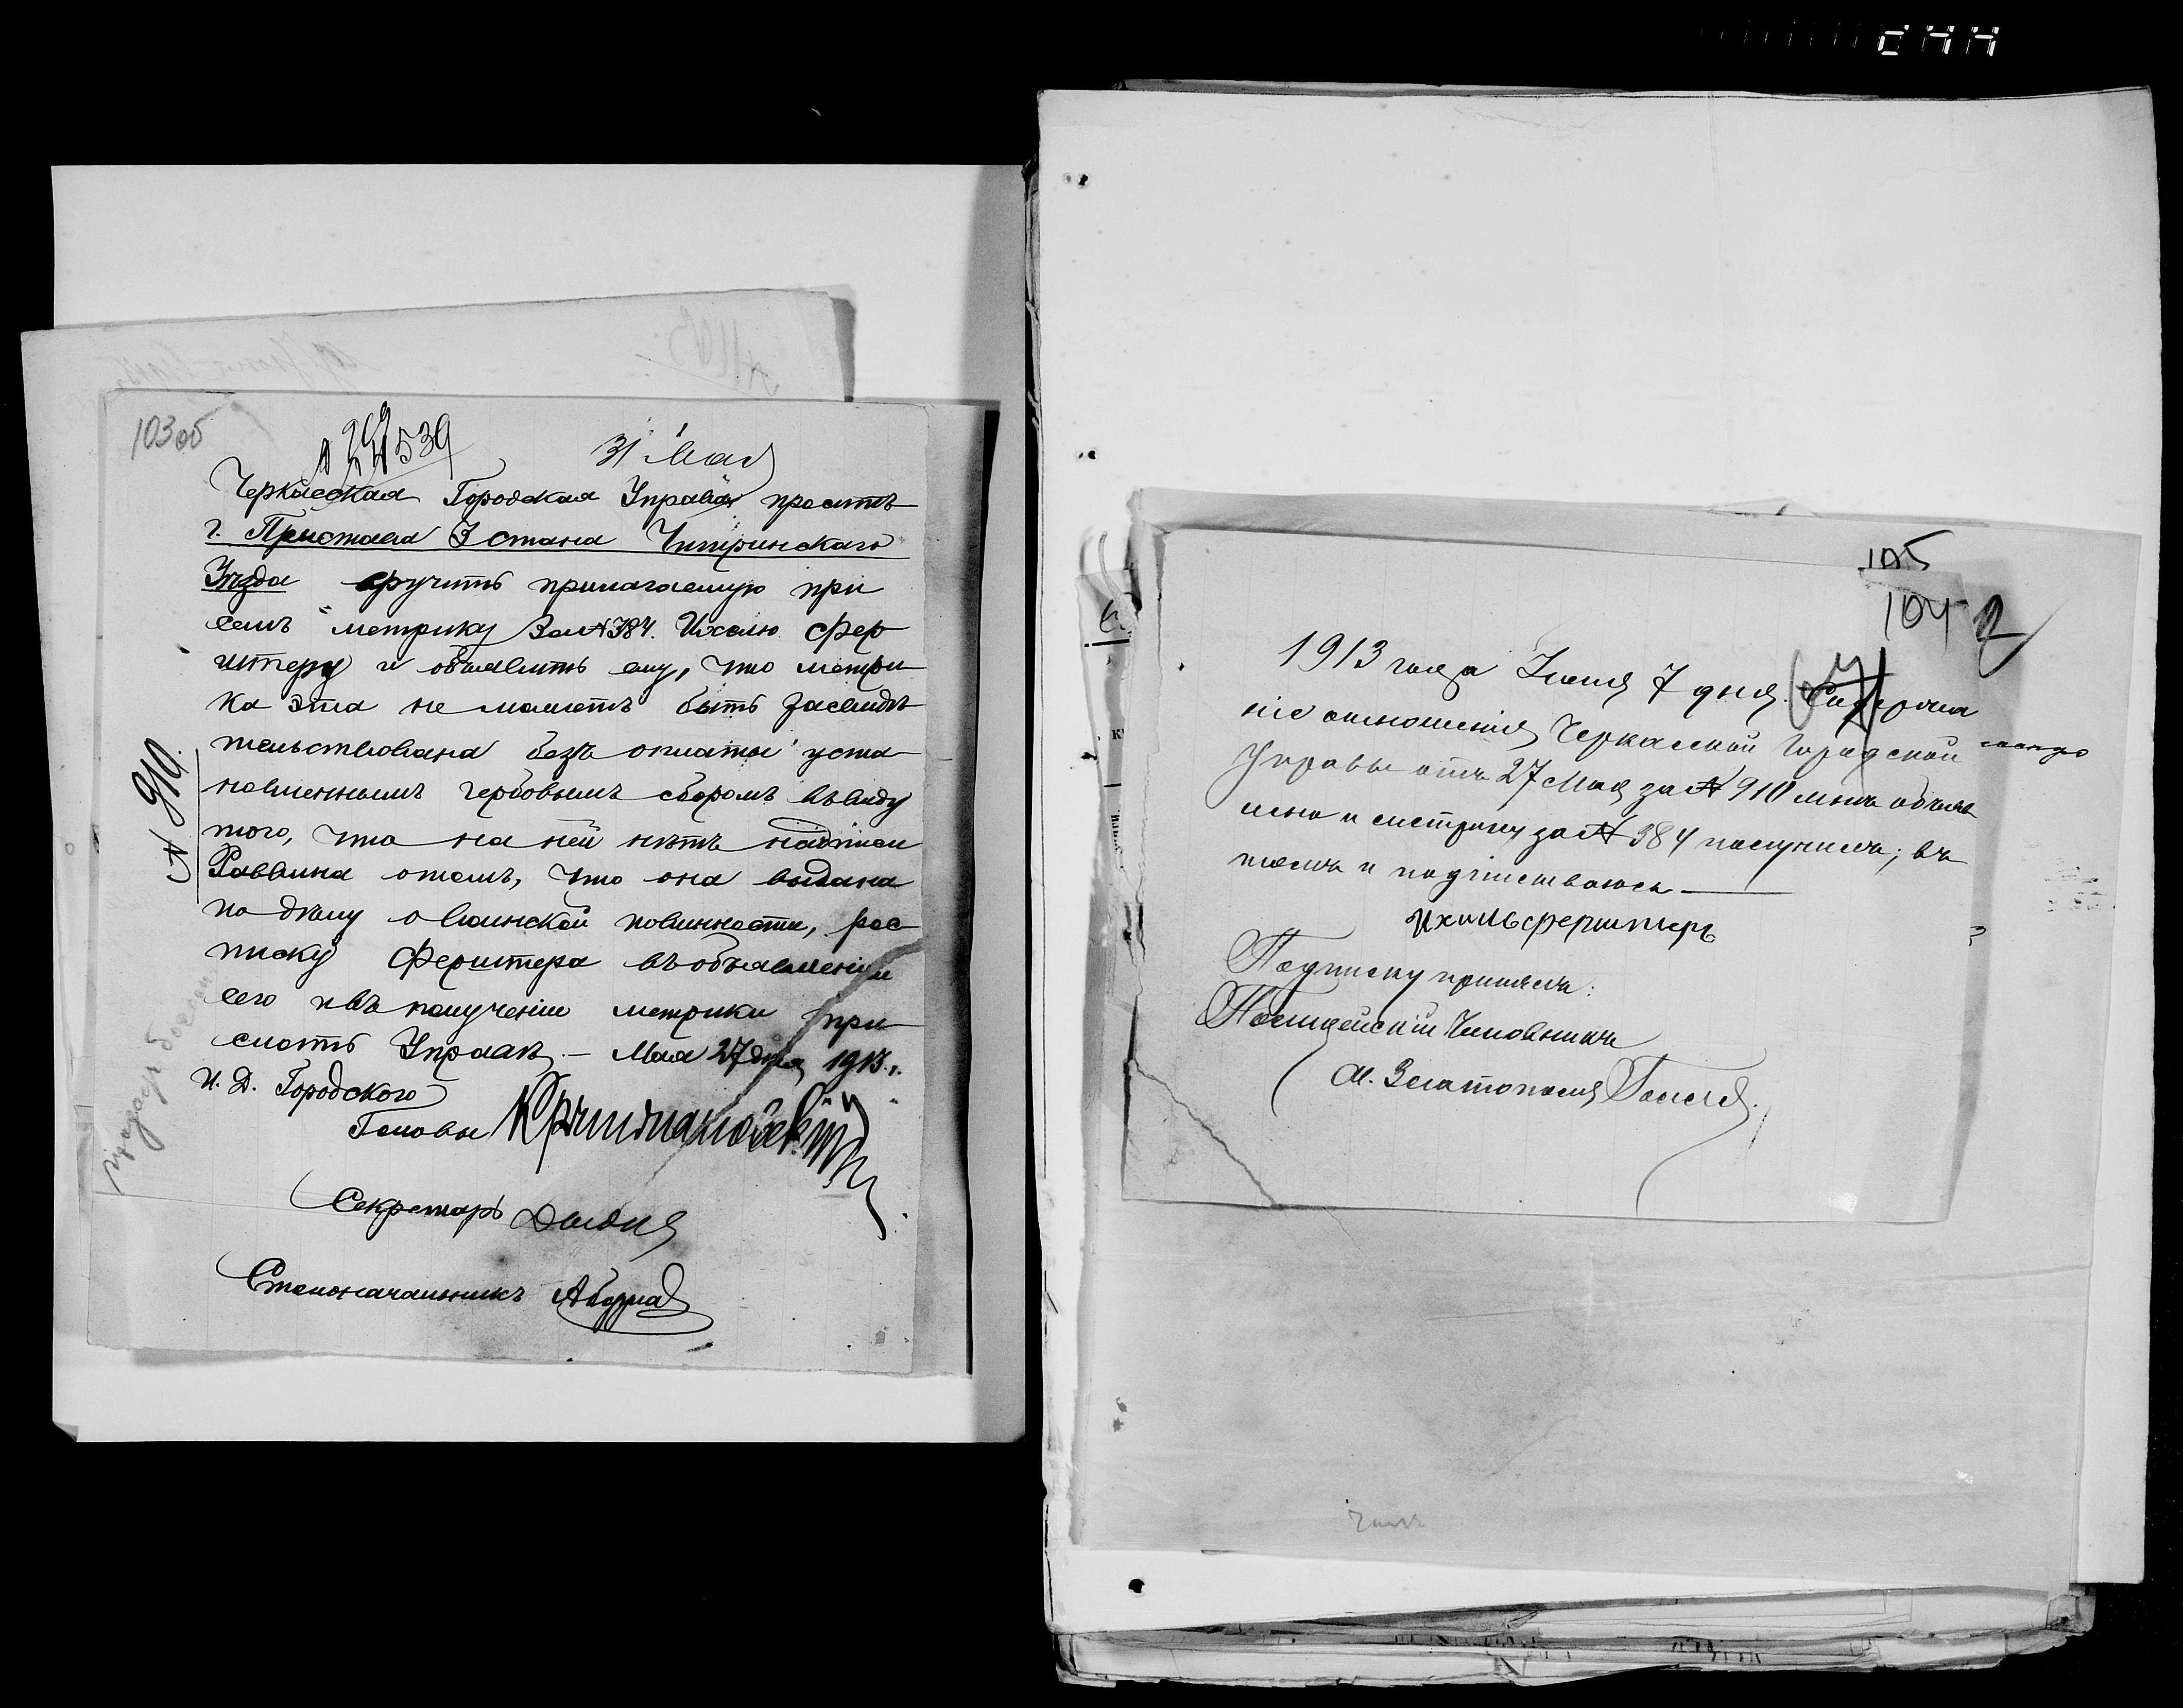 103 об
539
31 Мая
Черкасская Городская Управа проситъ
г. Пристава 3 стана Чигиринскаго
Уѣзда вручить прилагаемую при
семъ метрику За № 384. Ихелю Фер
штеру и объявить ему, что метри
ка эта не можетъ быть засвидѣ
тельствована безъ оплаты уста
новленнымъ гербовымъ сборомъ ввиду
того, что на ней нѣтъ надписи
Раввина отомъ, что она выдана
по дѣлу о воинской повинности, рос
писку Ферштера въ объявленіи
сего и въ полученіи метрики при
слать Управѣ. – Мая 27 дня 1913 г.
№ 910.
И. Д. Городского
Головы
Секретарь
Столоначальникъ
105
104
2
1913 года Іюня 7 дня. Содержа
ніе отношенія Черкасской Городской
Управы отъ 27 Мая за № 910 мнѣ объяв
лено и метрику за № 384 получилъ; въ
томъ и подписываюсь
Ихиль Ферштеръ
Подписку принялъ:
Полицейскій Чиновникъ
М. Златополя